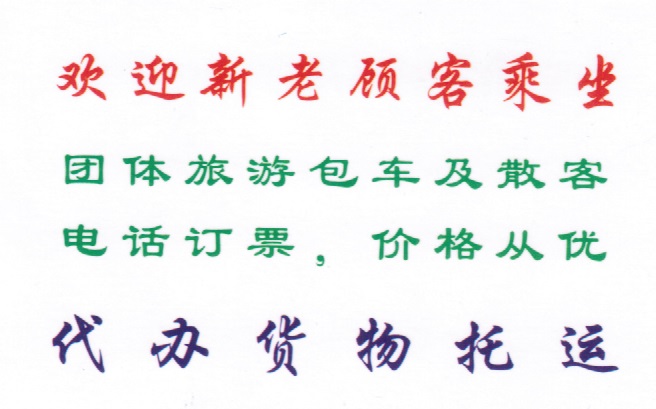 欢迎新老顾客乘坐
团体旅游包车及散客
电话订票，价格从优
代办货物托运